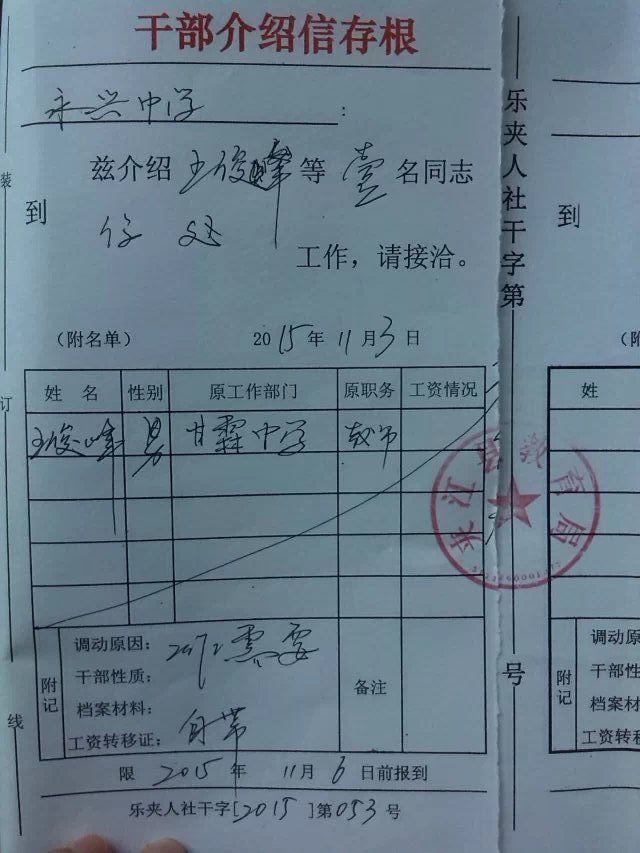 干部介绍信存根
永兴中学：
兹介绍 王俊峰 等 壹 名同志
到 你处
工作，请接洽。
（附名单） 2015年11月3日
姓 名 性别 原工作部门 原职务 工资情况
王俊峰 男 甘霖中学 教师
附记
调动原因：工作需要
干部性质：
档案材料：
工资转移证：自带
备注
限 2015年 11月 6日前报到
乐夹人社干字[2015]第053号
装
订
线
乐夹人社干字第
号
夹江县教育局
到
（附
姓
附记
调动原
干部性
档案材
工资转